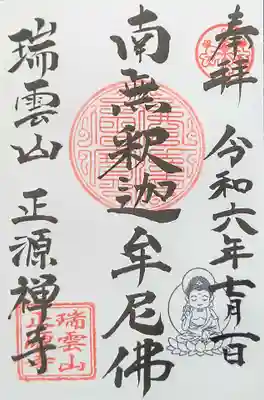 奉拝
令和六年七月一日
南無釋迦牟尼佛
瑞雲山 正源禅寺
瑞雲山
正源寺